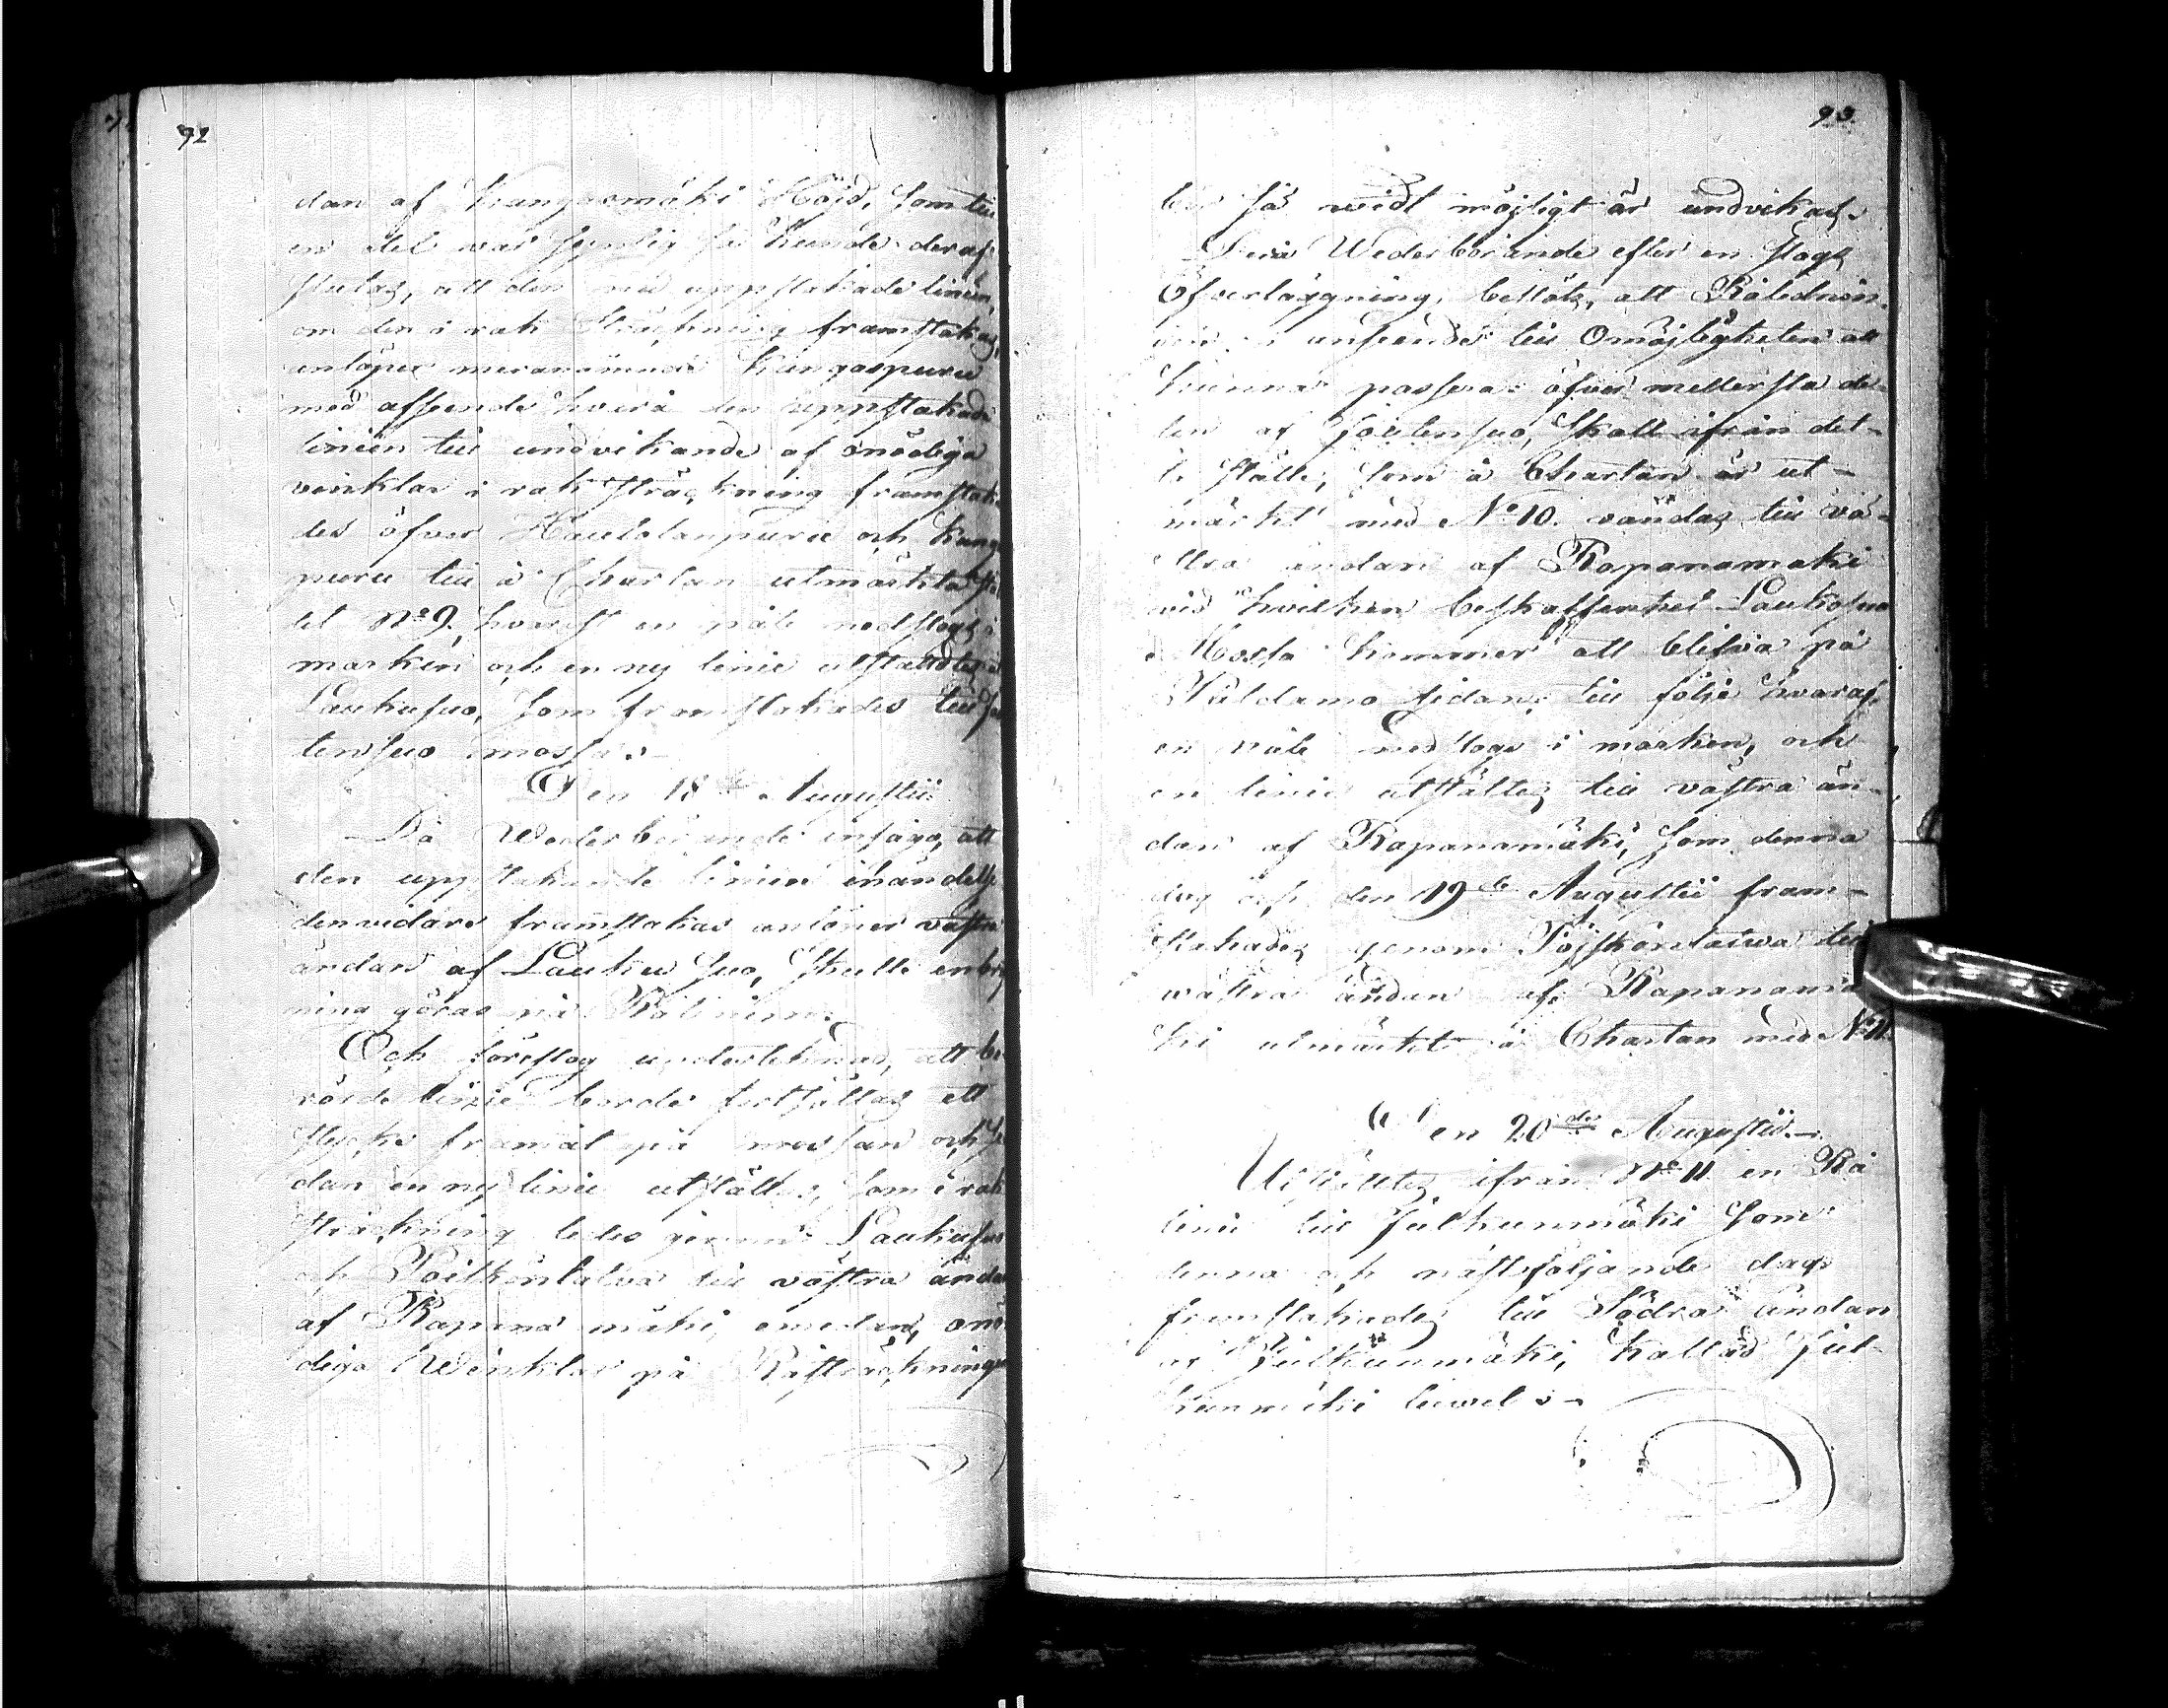 92
dan af Kangasmäki Höjd, som till
en del war synlig så kunde deraf
slutas, att den nu uppstakade linien,
om den i rak sträckning framstakas,
anlöper meranämnde Kangaspuru
med afseende hvarå den uppstakade
linien till undvikande af onödiga
vinklar i rak sträckning framstaka
des öfver Hautolanpuru och Kangas
puru till å Chartan utmärkta stäl
let No 9. hvarest en påle nedslogs i
marken och en ny linie utstakades å
Laukusuo, som framstakades till Jou
tensuo mossa.
Den 18de Augustii
Då Wederbörande insågo, att
den uppstakande linien i händelse
den vidare framstakas anlöper västra
ändan af Lauku suo, skulle en bry
ning göras på Rålinien.
Och föreslog undertecknad, att be
rörde linie borde fortsättas ett
stycke framåt på mossan och se
dan en ny linie utsättas, som i rak
sträckning ledes genom Laukusuo
och Poiskönlatva till västra ändan
af Rapana mäki, emedan onö
diga Winklar på Råsträckningen
93.
bör så widt möjligt är undvikas.
Dera Wederbörande efter en slags
Öfverläggning, beslöts, att Rålednin
gen i anseende till Omöjligheten att
kunna passera öfver mellersta de-
len af Joutensuo, skall ifrån det-
ta ställe, som å Chartan är ut-
märkt med No 10. vändas till vä-
stra ändan af Rapanamäki
vid hvilken beskaffenhet Laukosuo
Mossa kommer att blifva på
Suldamo sidan, till följe hvaraf,
en påle nedslogs i marken, och
en linie utstältes till västra än-
dan af Rapanamäki, som denna
dag och den 19de Augustii fram-
stakades genom Pojskönlatwa till
wästra ändan af Rapanamä
ki utmärkt å Chartan med No 11.
Den 20de Augustii.-
Utstältes ifrån No 11 en Rå
linie till Julkunmäki som
denna och nästföljande dag
framstakades till Södra ändan
af Julkunmäki, kallad Jul-
kunmäki